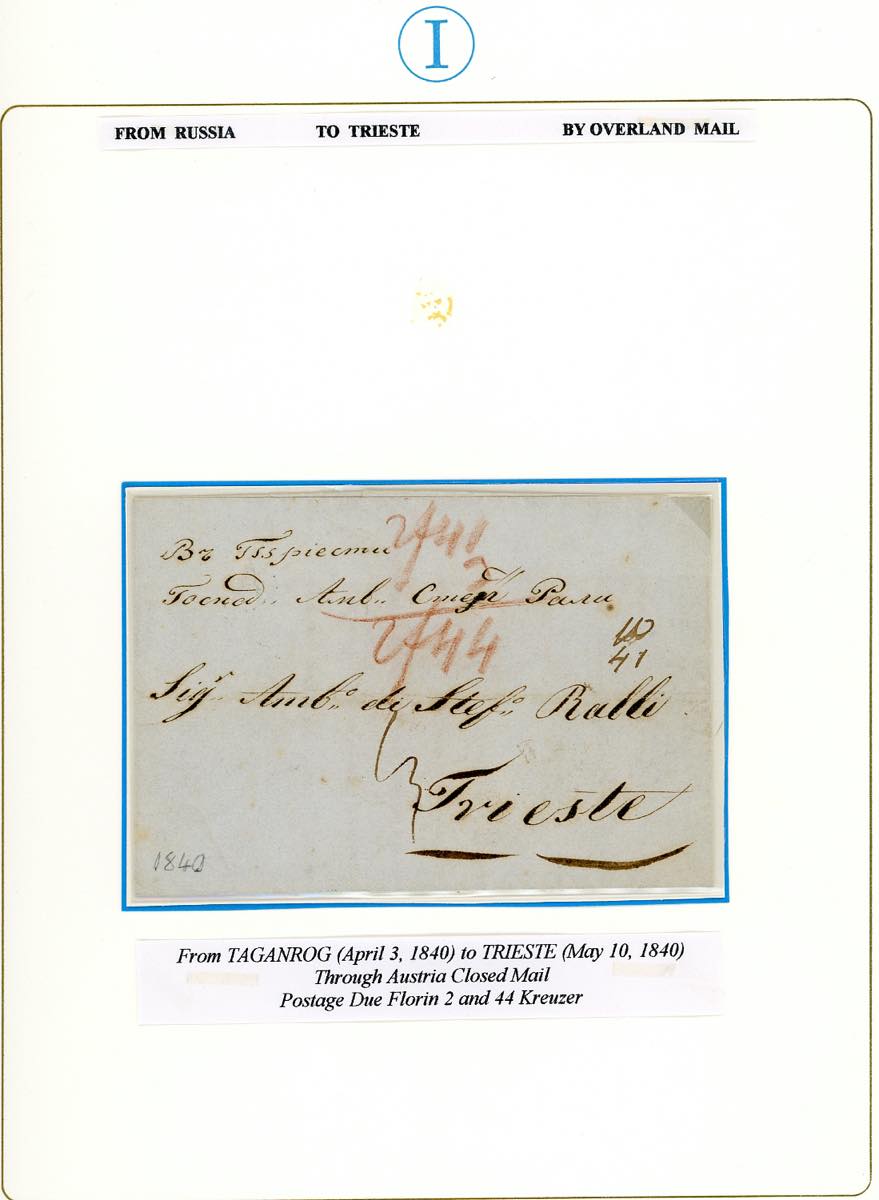 I
FROM RUSSIA TO TRIESTE BY OVERLAND MAIL
Въ Тріести
2f41
3
Господ:: Амв:: Стеф Рали
2f44
41
Sigr. Ambo:: di Stefo:: Ralli
Trieste
1840
From TAGANROG (April 3, 1840) to TRIESTE (May 10, 1840)
Through Austria Closed Mail
Postage Due Florin 2 and 44 Kreuzer